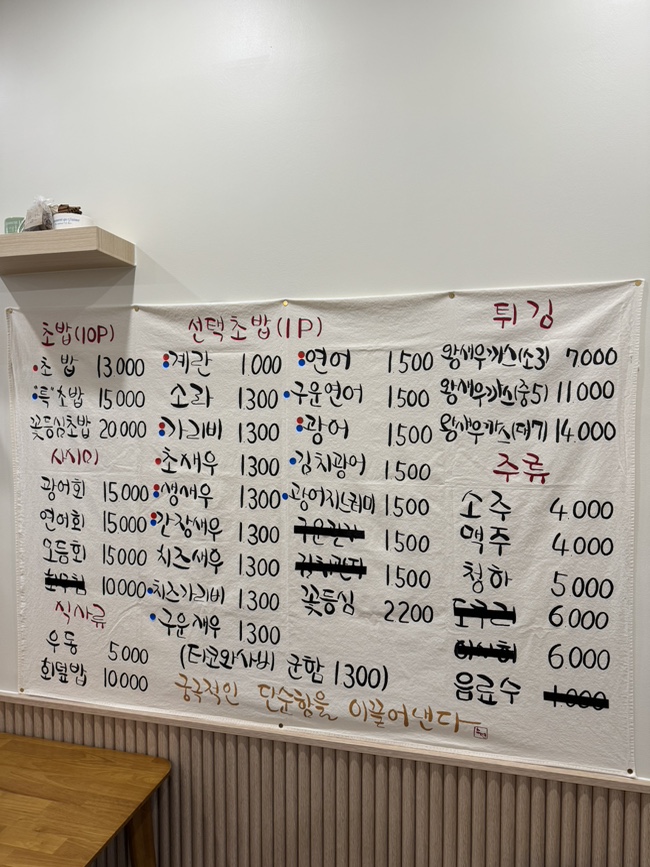 초밥(10P)
초밥 13000
"특"초밥 15000
꽃등심초밥 20000
사시미
광어회 15000
연어회 15000
모듬회 15000
10000
식사류
우동 5000
회덮밥 10000
선택초밥(1P)
계란 1000
소라 1300
가리비 1300
초새우 1300
생새우 1300
간장새우 1300
치즈새우 1300
치즈가리비 1300
구운새우 1300
(타코와사비 군함 1300)
연어 1500
구운연어 1500
광어 1500
김치광어 1500
광어지느러미 1500
1500
1500
꽃등심 2200
튀김
왕새우까스(소3) 7000
왕새우까스(중5) 11000
왕새우까스(대7) 14000
주류
소주 4.000
맥주 4.000
청하 5000
6000
6000
음료수
궁극적인 단순함을 이끌어낸다